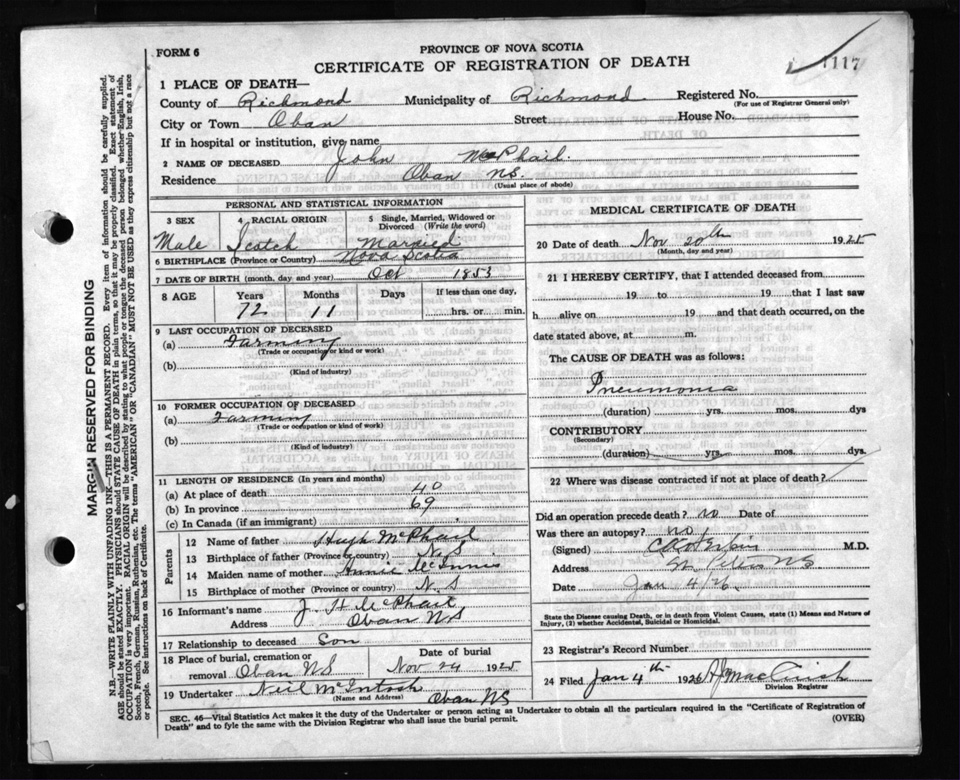 FORM 6
PROVINCE OF NOVA SCOTIA
CERTIFICATE OF REGISTRATION OF DEATH
1117
1 PLACE OF DEATH—
County of Richmond Municipality of Richmond Registered No.
(For use of Registrar General only)
City or Town Oban Street House No.
If in hospital or institution, give name
2 NAME OF DECEASED John McPhail
Residence Oban N.S.
(Usual place of abode)
PERSONAL AND STATISTICAL INFORMATION
3 SEX 4 RACIAL ORIGIN 5 Single, Married, Widowed or Divorced (Write the word)
Male Scotch Married
6 BIRTHPLACE (Province or Country) Nova Scotia
7 DATE OF BIRTH (month, day, and year) Oct 1853
8 AGE Years Months Days If less than one day,
72 11 hrs. or min.
9 LAST OCCUPATION OF DECEASED
(a) Farming
(Trade or occupation or kind or work)
(b)
(Kind of industry)
10 FORMER OCCUPATION OF DECEASED
(a) Farming
(Trade or occupation or kind or work)
(b)
(Kind of industry)
11 LENGTH OF RESIDENCE (In years and months)
(a) At place of death 40
(b) In province 69
(c) In Canada (if an immigrant)
Parents
12 Name of father Hugh McPhail
13 Birthplace of father (Province or country) N.S
14 Maiden name of mother Annie McInnis
15 Birthplace of mother (Province or country) N.S
16 Informant's name J. H McPhail
Address Oban N.S
17 Relationship to deceased Son
18 Place of burial, cremation or removal Oban NS Date of burial Nov 24 1925
19 Undertaker Neil McIntosh
(Name and Address) Oban NS
MEDICAL CERTIFICATE OF DEATH
20 Date of death Nov 20th 1925
(Month, day and year)
21 I HEREBY CERTIFY, that I attended deceased from
19 to 19 that I last saw
h alive on 19 and that death occurred, on the
date stated above, at m.
The CAUSE OF DEATH was as follows:
Pneumonia
(duration) yrs. mos. dys
CONTRIBUTORY
(Secondary)
(duration) yrs. mos. dys
22 Where was disease contracted if not at place of death?
Did an operation precede death? no Date of
Was there an autopsy? no
(Signed) M.D.
Address St. Peters NS
Date Jan 4/26
State the Disease causing Death, or in death from Violent Causes, state (1) Means and Nature of Injury, (2) whether Accidental, Suicidal or Homicidal.
23 Registrar's Record Number
24 Filed Jan 4th 1926
Division Registrar
SEC. 46—Vital Statistics Act makes it the duty of the Undertaker or person acting as Undertaker to obtain all the particulars required in the "Certificate of Registration of
Death" and to fyle the same with the Division Registrar who shall issue the burial permit.
(OVER)
MARGIN RESERVED FOR BINDING
N.B.—WRITE PLAINLY WITH UNFADING INK—THIS IS A PERMANENT RECORD. Every item of information should be carefully supplied.
AGE should be stated EXACTLY. PHYSICIANS should STATE CAUSE OF DEATH in plain terms, so that it may be properly classified. Exact statement of
OCCUPATION is very important. RACIAL ORIGIN will be described by stating to what people or tongue the deceased person belonged whether English, Irish,
Scotch, French, German, Russian, Ruthenian, etc. The terms "AMERICAN" OR "CANADIAN" MUST NOT BE USED as they express citizenship but not a race
or people. See instructions on back of Certificate.